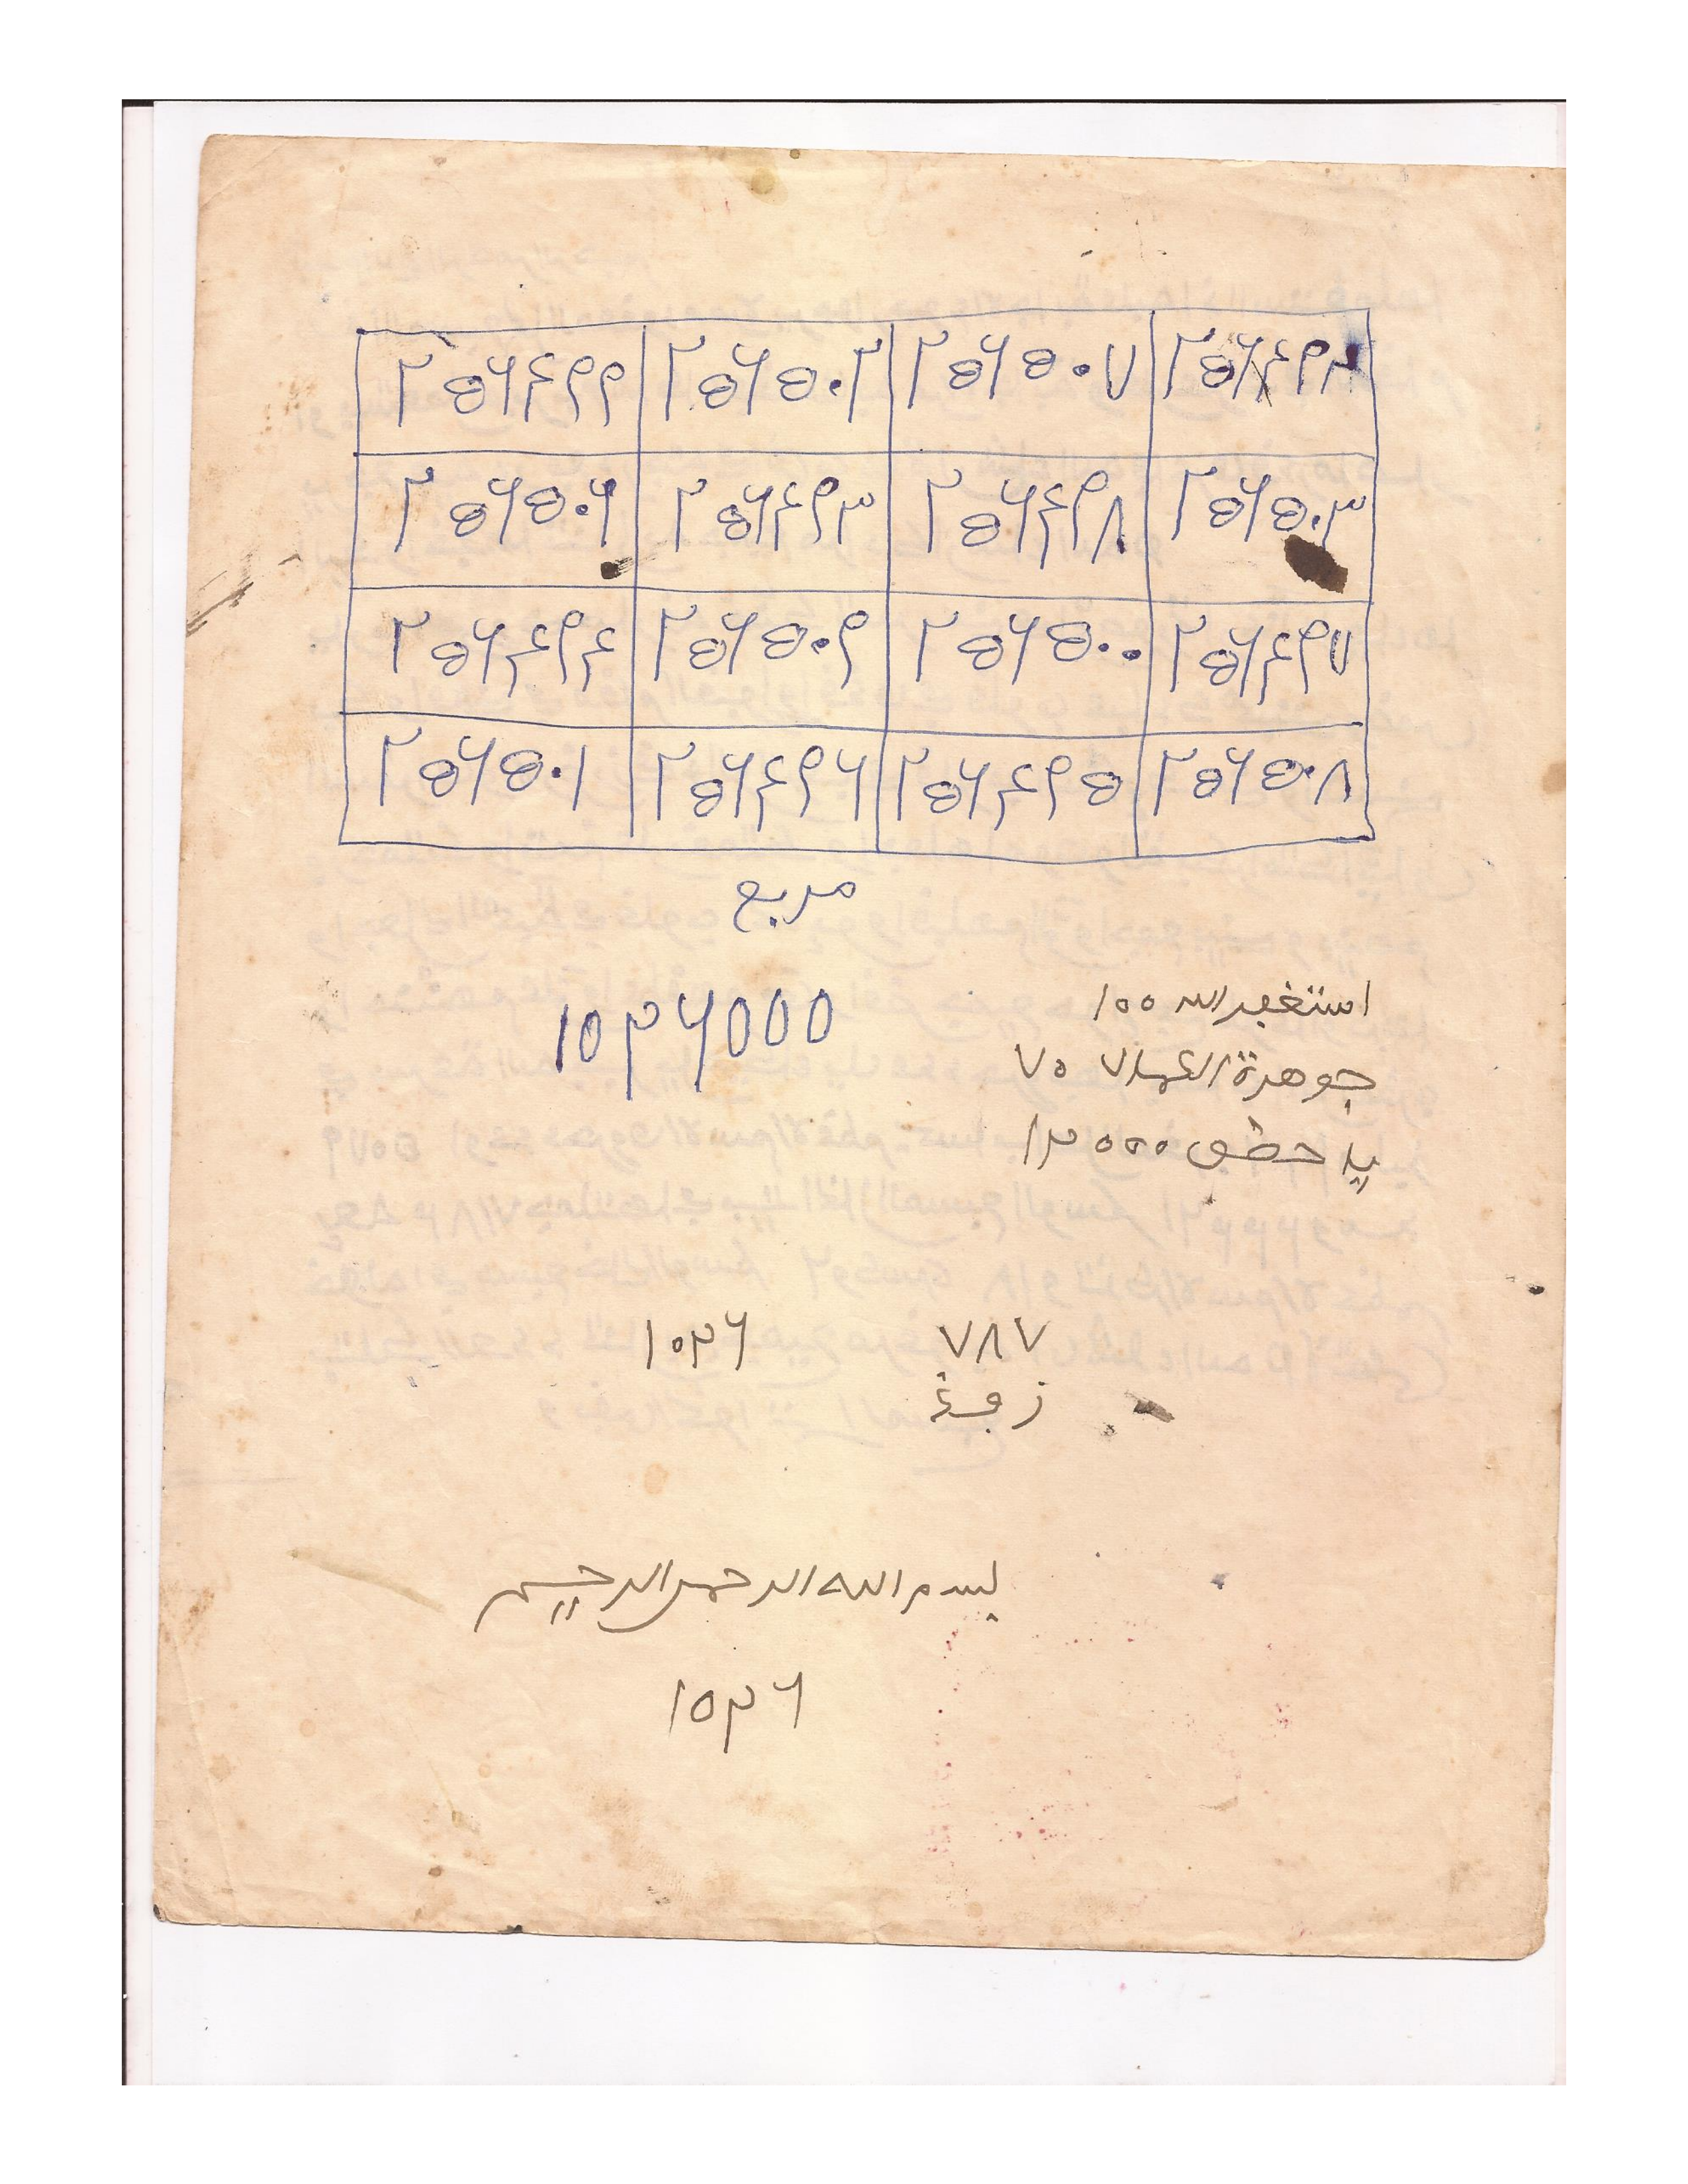 ٢٥٦٤٩٩ ٢٥٦٥٠٢ ٢٥٦٥٠٧ ٢٥٦٤٩٢
٢٥٦٥٠٦ ٢٥٦٤٩٣ ٢٥٦٤٩٨ ٢٥٦٥٠٣
٢٥٦٤٩٤ ٢٥٦٥٠٩ ٢٥٦٥٠٠ ٢٥٦٤٩٧
٢٥٦٥٠١ ٢٥٦٤٩٦ ٢٥٦٤٩٥ ٢٥٦٥٠٨
مربع
١٠٢٦٠٠٠
استغفر الله ١٠٠
جوهرة الكمال ٧٠
يا ١٢٠٠٠
٧٨٧
١٠٢٦
بسم الله الرحمن الرحيم
١٠٢٦